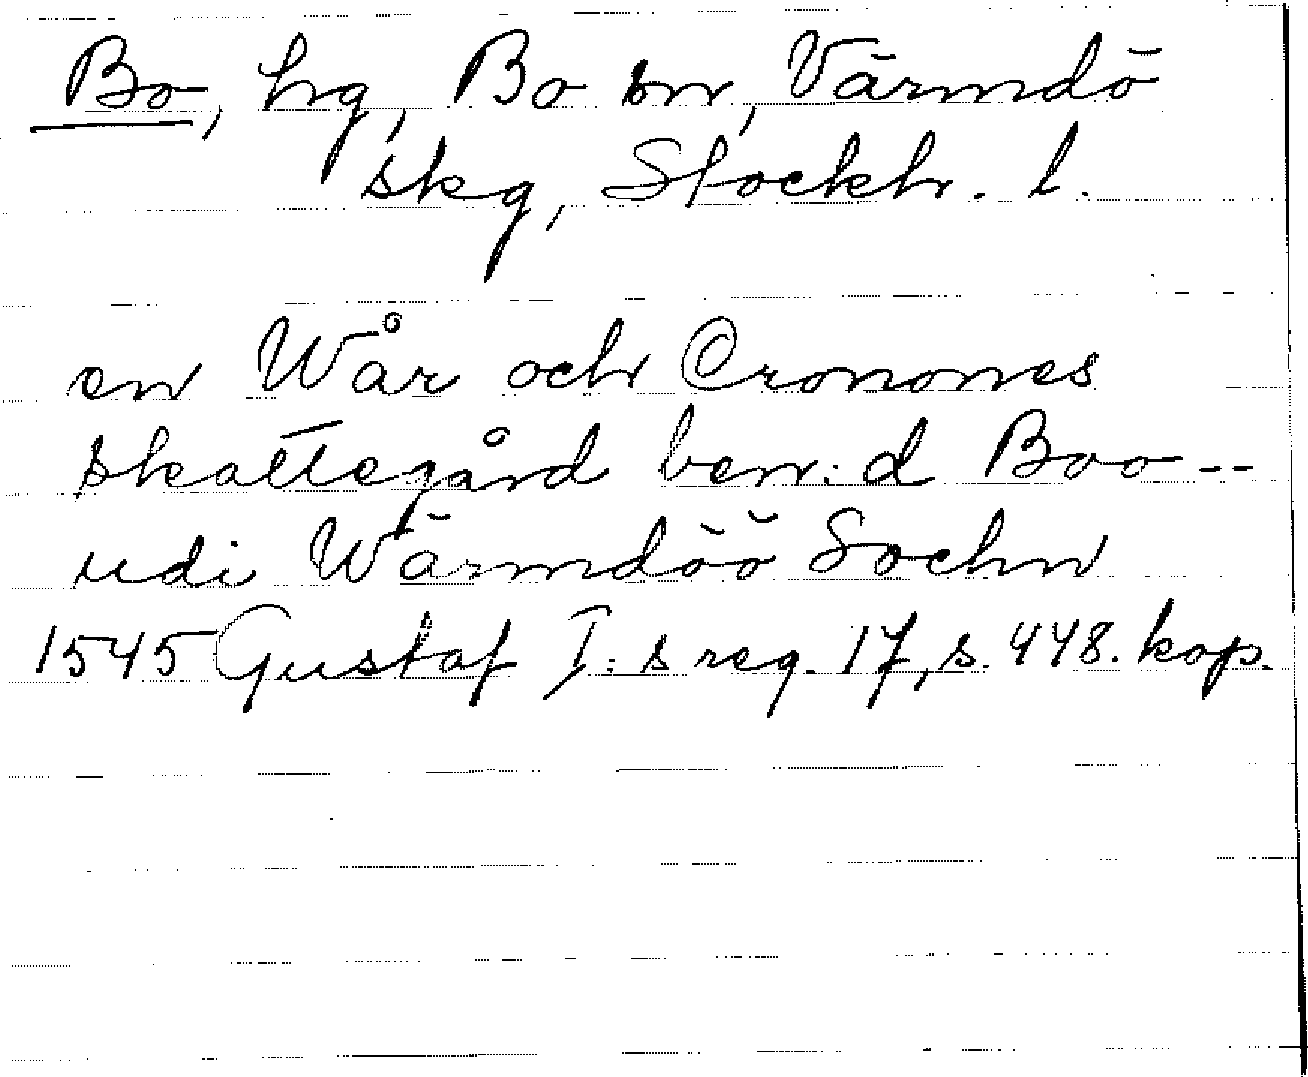 Bo, hg, Bo sn, Värmdö
skg, Stockh. l.
en Wår och Cronones
skattegård ben:d Boo--
udi Wärmdöö Sochn
1545 Gustaf I:s reg. 17, s. 448. kop.